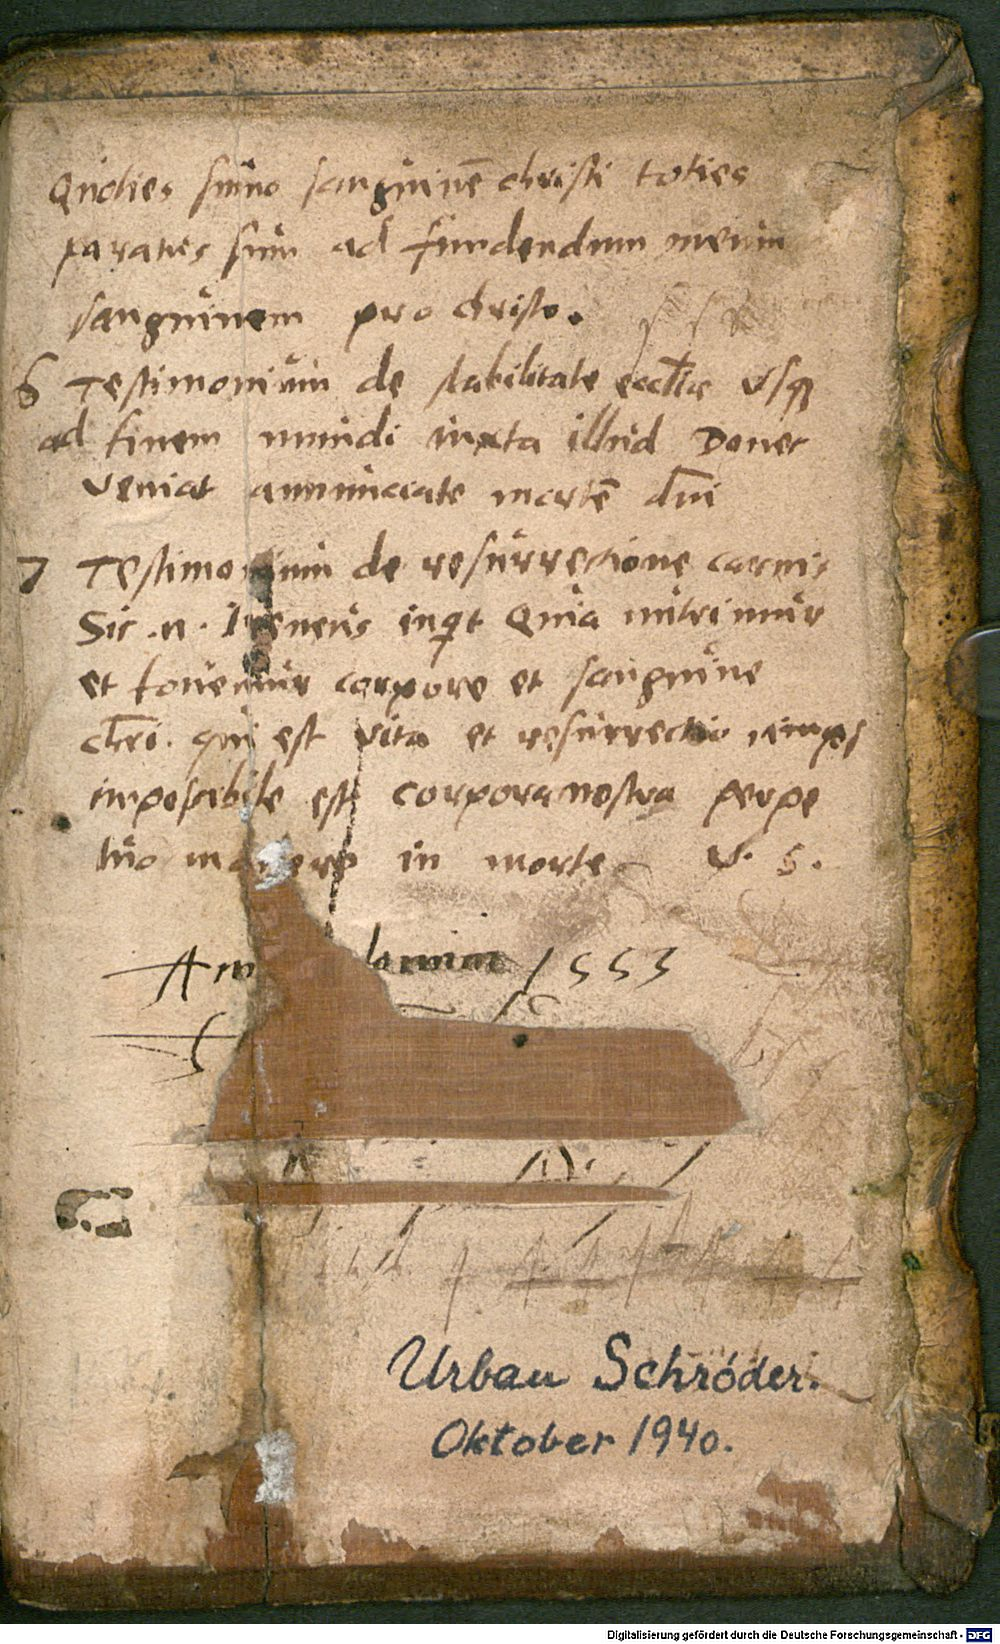 Quoties sumo sanguinē christi toties
paratus sum ad fundendum meum
sanguinem pro christo.
6 Testimonium de stabilitate ecclīae usq
ad finem mundi iuxta illud Donec
veniat annunciate mortē dn̄i
7 Testimonium de resurrectione carnis
Sic .n. Ireneus inqt Quia nutrimur
et fouemur corpore et sanguine
chr̄i. qui est vita et resurrectio
impossibile est corpora nostra perpe
tuo manere in morte V. S.
1553
Urban Schröder.
Oktober 1940.
Digitalisierung gefördert durch die Deutsche Forschungsgemeinschaft - DFG